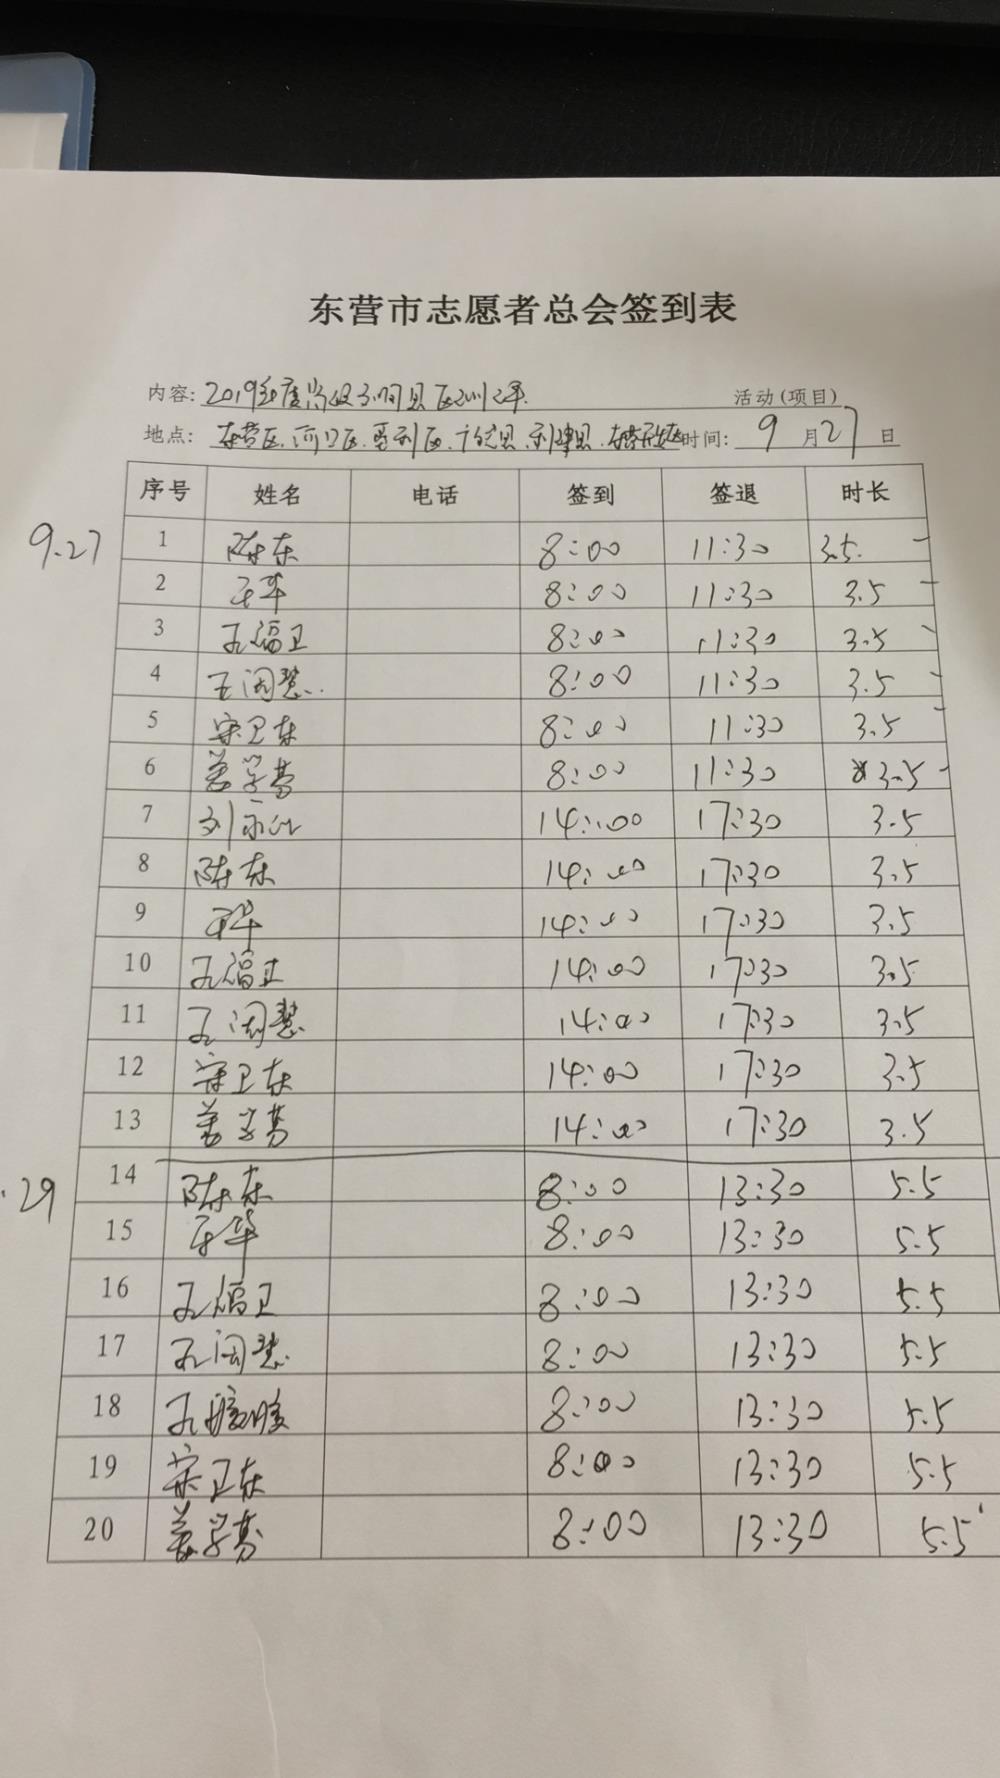 东营市志愿者总会签到表
内容: 2019年度 县区 活动(项目)
地点: 东营区.河口区.垦利区.广饶县.利津县. 时间: 9月27日
序号 姓名 电话 签到 签退 时长
9.27 1 陈东 8:00 11:30 3.5.
2 华 8:00 11:30 3.5
3 福卫 8:00 11:30 3.5
4 王闰慧 8:00 11:30 3.5
5 宋卫东 8:00 11:30 3.5
6 姜学 8:00 11:30 3.5
7 刘 14:00 17:30 3.5
8 陈东 14:00 17:30 3.5
9 华 14:00 17:30 3.5
10 福卫 14:00 17:30 3.5
11 王闰慧 14:00 17:30 3.5
12 宋卫东 14:00 17:30 3.5
13 姜学 14:00 17:30 3.5
.29 14 陈东 8:00 13:30 5.5
15 华 8:00 13:30 5.5
16 福卫 8:00 13:30 5.5
17 王闰慧 8:00 13:30 5.5
18 8:00 13:30 5.5
19 宋卫东 8:00 13:30 5.5
20 姜学 8:00 13:30 5.5